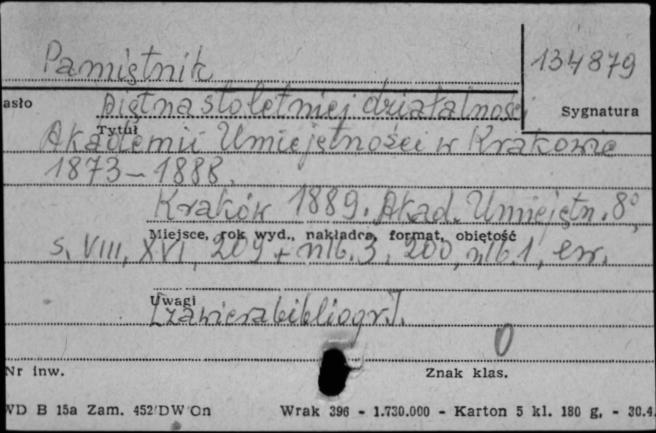 Pamiętnik
134879
asło
piętnastoletniej działalności
Sygnatura
Tytuł
Akademii Umiejętności w Krakowie
1873-1888.
Kraków 1889. Akad. Umiejętn. 8°,
Miejsce, rok wyd., nakładca, format, objętość
s. VIII, XVI, 209 + nlb. 3, 200, nlb. 1, err.
Uwagi
[zawiera bibliogr.].
0
Nr inw.
Znak klas.
WD B 15a Zam. 452/DW/On
Wrak 396 - 1.730.000 - Karton 5 kl. 180 g, - 30.4.